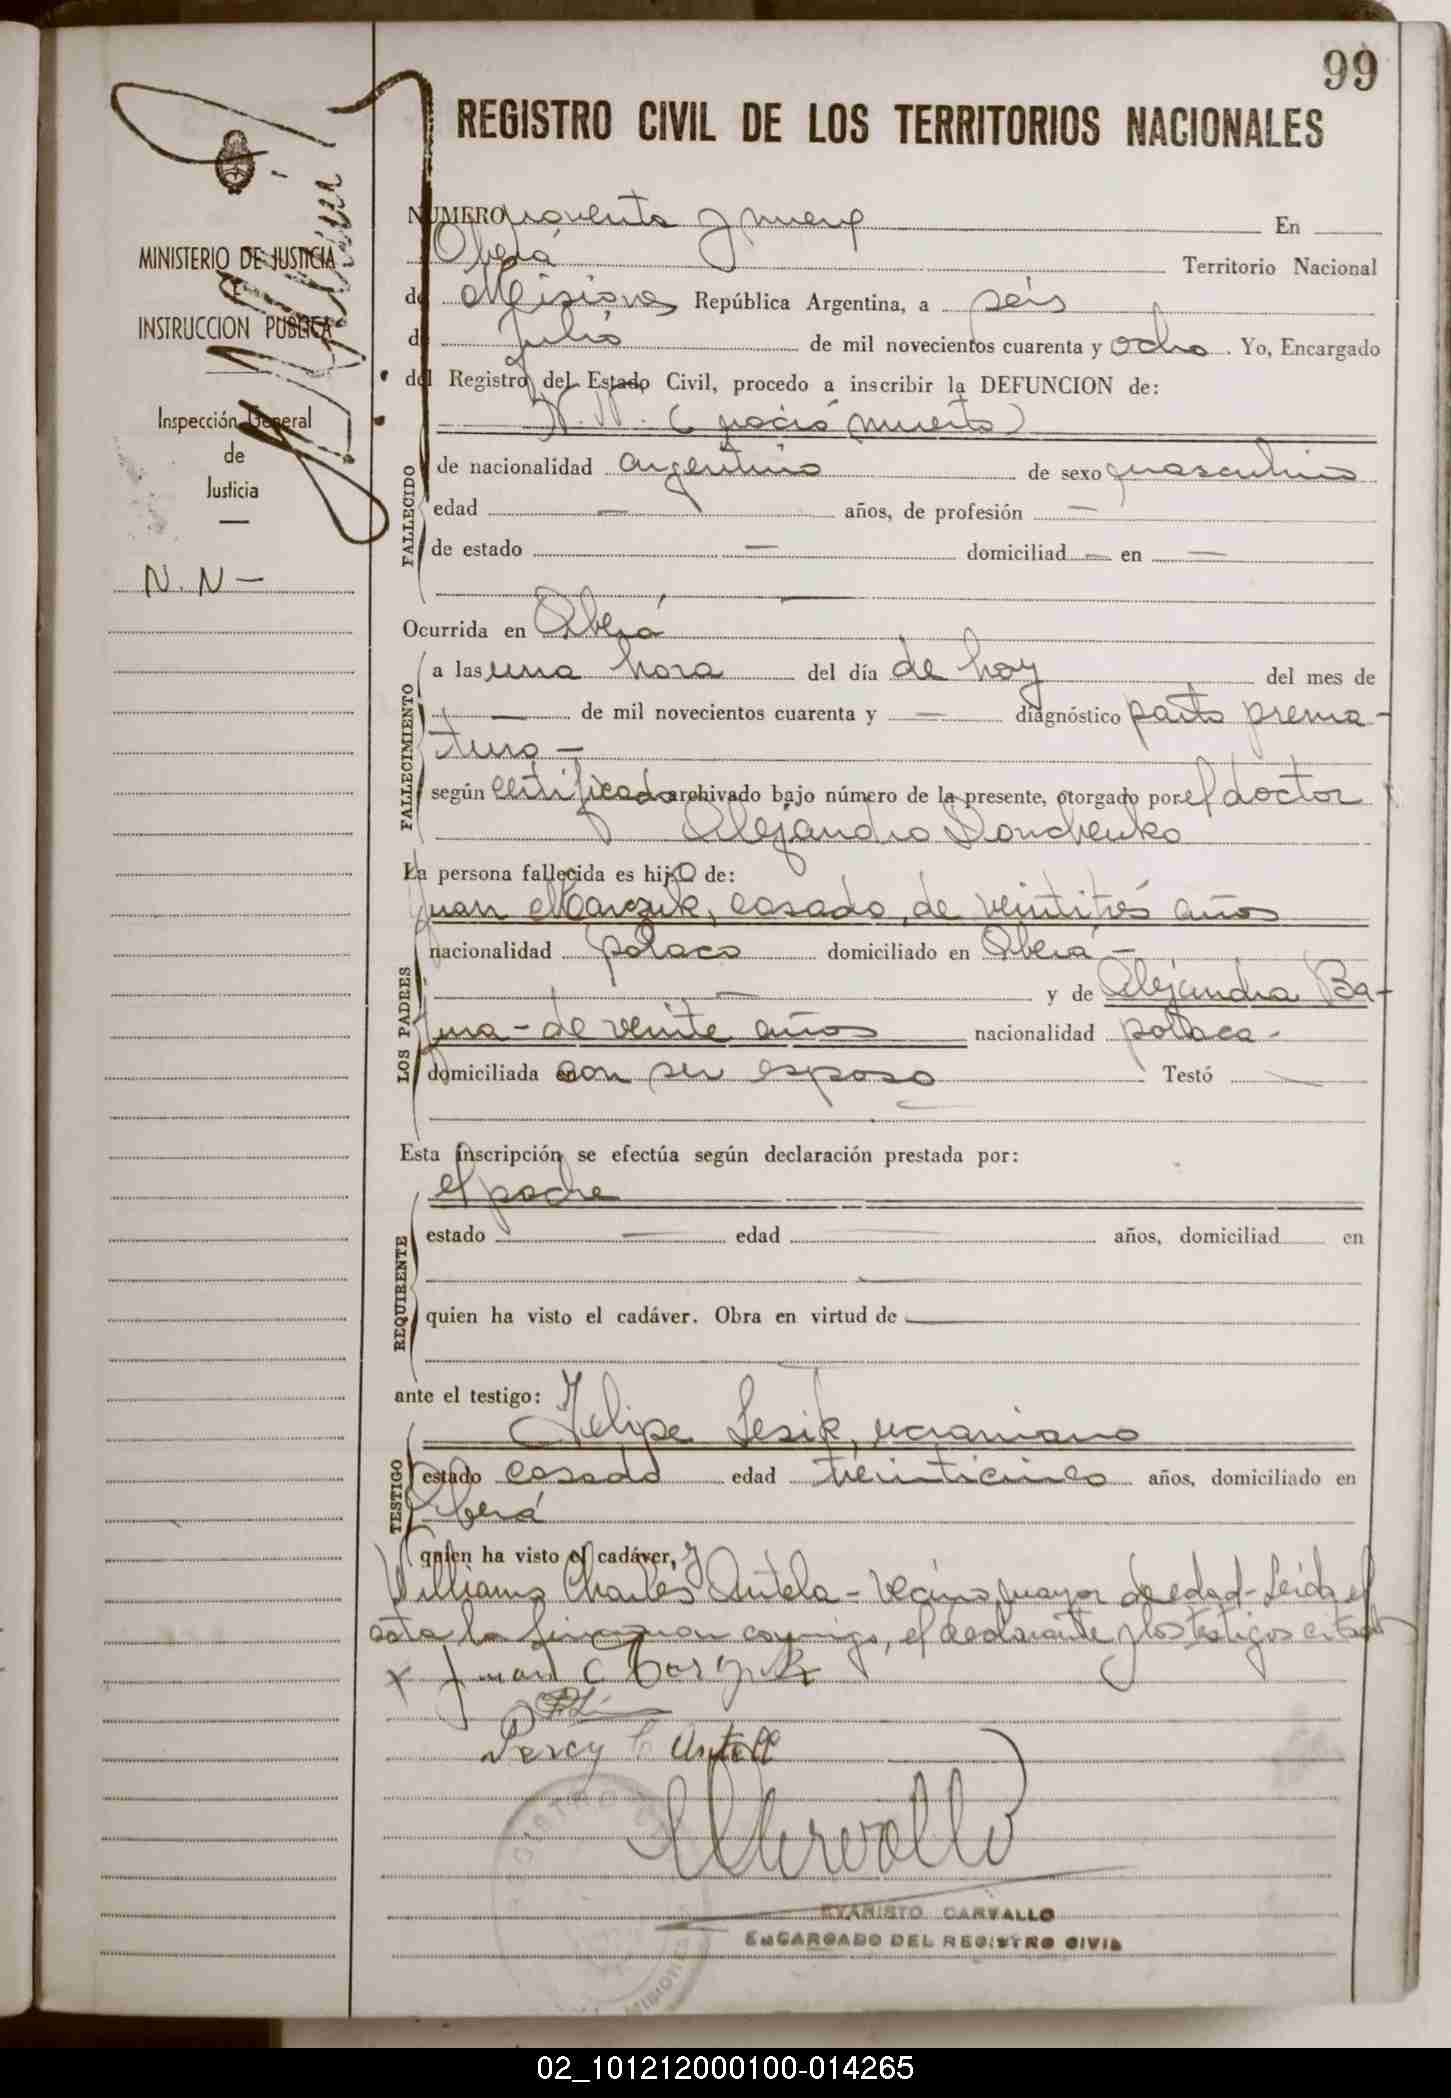 99
REGISTRO CIVIL DE LOS TERRITORIOS NACIONALES
MINISTERIO DE JUSTICIA
E
INSTRUCCION PUBLICA
Inspección General
de
Justicia
N. N —
NUMERO noventa y nueve En
Oberá Territorio Nacional
de Misiones República Argentina, a seis
de julio de mil novecientos cuarenta y ocho. Yo, Encargado
del Registro del Estado Civil, procedo a inscribir la DEFUNCION de:
N. N. (nació muerto)
FALLECIDO
de nacionalidad argentino de sexo masculino
edad — años, de profesión —
de estado — domiciliad — en —
Ocurrida en Oberá
FALLECIMIENTO
a las una hora del día de hoy del mes de
— de mil novecientos cuarenta y — diagnóstico parto prema-
turo —
según certificado archivado bajo número de la presente, otorgado por el doctor
Alejandro Donchenko
La persona fallecida es hijo de:
LOS PADRES
Juan Marzuk, casado, de veintitrés años
nacionalidad polaco domiciliado en Oberá —
— y de Alejandra Ba-
- de veinte años nacionalidad polaca -
domiciliada en con su esposo Testó —
Esta inscripción se efectúa según declaración prestada por:
REQUIRENTE
el padre
estado — edad — años, domiciliad en
—
quien ha visto el cadáver. Obra en virtud de —
ante el testigo:
TESTIGO
Felipe Lesik, ucraniano
estado casado edad treinticinco años, domiciliado en
Oberá
quien ha visto el cadáver, y
Williams Charles Antela - vecino, mayor de edad - Leida el
acta la firmaron conmigo, el declarante y los testigos citados
x Juan Marzuk
Percy C.
EVARISTO CARVALLO
ENCARGADO DEL REGISTRO CIVIL
02_101212000100-014265